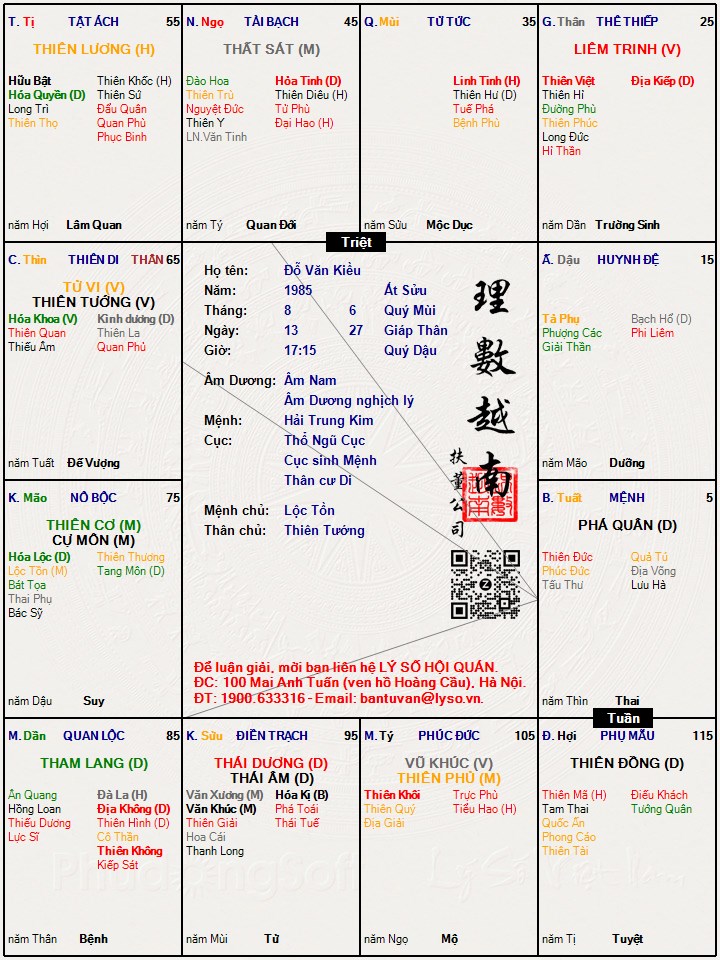 T. Tị TẬT ÁCH 55
THIÊN LƯƠNG (H)
Hữu Bật Thiên Khốc (H)
Hóa Quyền (D) Thiên Sứ
Long Trì Đẩu Quân
Thiên Thọ Quan Phù
Phục Binh
năm Hợi Lâm Quan
N. Ngọ TÀI BẠCH 45
THẤT SÁT (M)
Đào Hoa Hỏa Tinh (D)
Thiên Trù Thiên Diêu (H)
Nguyệt Đức Tử Phù
Thiên Y Đại Hao (H)
LN.Văn Tinh
năm Tý Quan Đới
Q. Mùi TỬ TỨC 35
Linh Tinh (H)
Thiên Hư (D)
Tuế Phá
Bệnh Phù
năm Sửu Mộc Dục
G. Thân THÊ THIẾP 25
LIÊM TRINH (V)
Thiên Việt Địa Kiếp (D)
Thiên Hỉ
Đường Phù
Thiên Phúc
Long Đức
Hỉ Thần
năm Dần Trường Sinh
Triệt
C. Thìn THIÊN DI THÂN 65
TỬ VI (V)
THIÊN TƯỚNG (V)
Hóa Khoa (V) Kình dương (D)
Thiên Quan Thiên La
Thiếu Âm Quan Phủ
năm Tuất Đế Vượng
Họ tên: Đỗ Văn Kiều
Năm: 1985 Ất Sửu
Tháng: 8 6 Quý Mùi
Ngày: 13 27 Giáp Thân
Giờ: 17:15 Quý Dậu
Âm Dương: Âm Nam
Âm Dương nghịch lý
Mệnh: Hải Trung Kim
Cục: Thổ Ngũ Cục
Cục sinh Mệnh
Thân cư Di
Mệnh chủ: Lộc Tồn
Thân chủ: Thiên Tướng
理數越南
扶董公司
Để luận giải, mời bạn liên hệ LÝ SỐ HỘI QUÁN.
ĐC: 100 Mai Anh Tuấn (ven hồ Hoàng Cầu), Hà Nội.
ĐT: 1900.633316 - Email: bantuvan@lyso.vn.
Ấ. Dậu HUYNH ĐỆ 15
Tả Phụ Bạch Hổ (D)
Phượng Các Phi Liêm
Giải Thần
năm Mão Dưỡng
K. Mão NÔ BỘC 75
THIÊN CƠ (M)
CỰ MÔN (M)
Hóa Lộc (D) Thiên Thương
Lộc Tồn (M) Tang Môn (D)
Bát Tọa
Thai Phụ
Bác Sỹ
năm Dậu Suy
B. Tuất MỆNH 5
PHÁ QUÂN (D)
Thiên Đức Quả Tú
Phúc Đức Địa Võng
Tấu Thư Lưu Hà
năm Thìn Thai
Tuần
M. Dần QUAN LỘC 85
THAM LANG (D)
Ân Quang Đà La (H)
Hồng Loan Địa Không (D)
Thiếu Dương Thiên Hình (D)
Lực Sĩ Cô Thần
Thiên Không
Kiếp Sát
năm Thân Bệnh
K. Sửu ĐIỀN TRẠCH 95
THÁI DƯƠNG (D)
THÁI ÂM (D)
Văn Xương (M) Hóa Kị (B)
Văn Khúc (M) Phá Toái
Thiên Giải Thái Tuế
Hoa Cái
Thanh Long
năm Mùi Tử
M. Tý PHÚC ĐỨC 105
VŨ KHÚC (V)
THIÊN PHỦ (M)
Thiên Khôi Trực Phù
Thiên Quý Tiểu Hao (H)
Địa Giải
năm Ngọ Mộ
Đ. Hợi PHỤ MẪU 115
THIÊN ĐỒNG (D)
Thiên Mã (H) Điếu Khách
Tam Thai Tướng Quân
Quốc Ấn
Phong Cáo
Thiên Tài
năm Tị Tuyệt